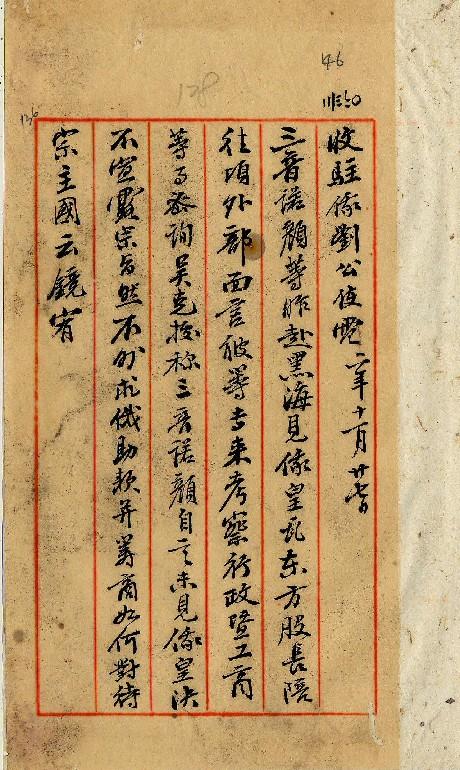 46
128
136
收駐俄劉公使電 二年十一月廿七日
三音諾顏等昨赴黑海見俄皇派東方股長陪
往頃外部面言彼等專來考察行政暨工商
等事密詢吳克拔稱三音諾顏自言未見俄皇決
不宣露宗旨然不外求俄助款并籌商如何對待
宗主國云鏡宥